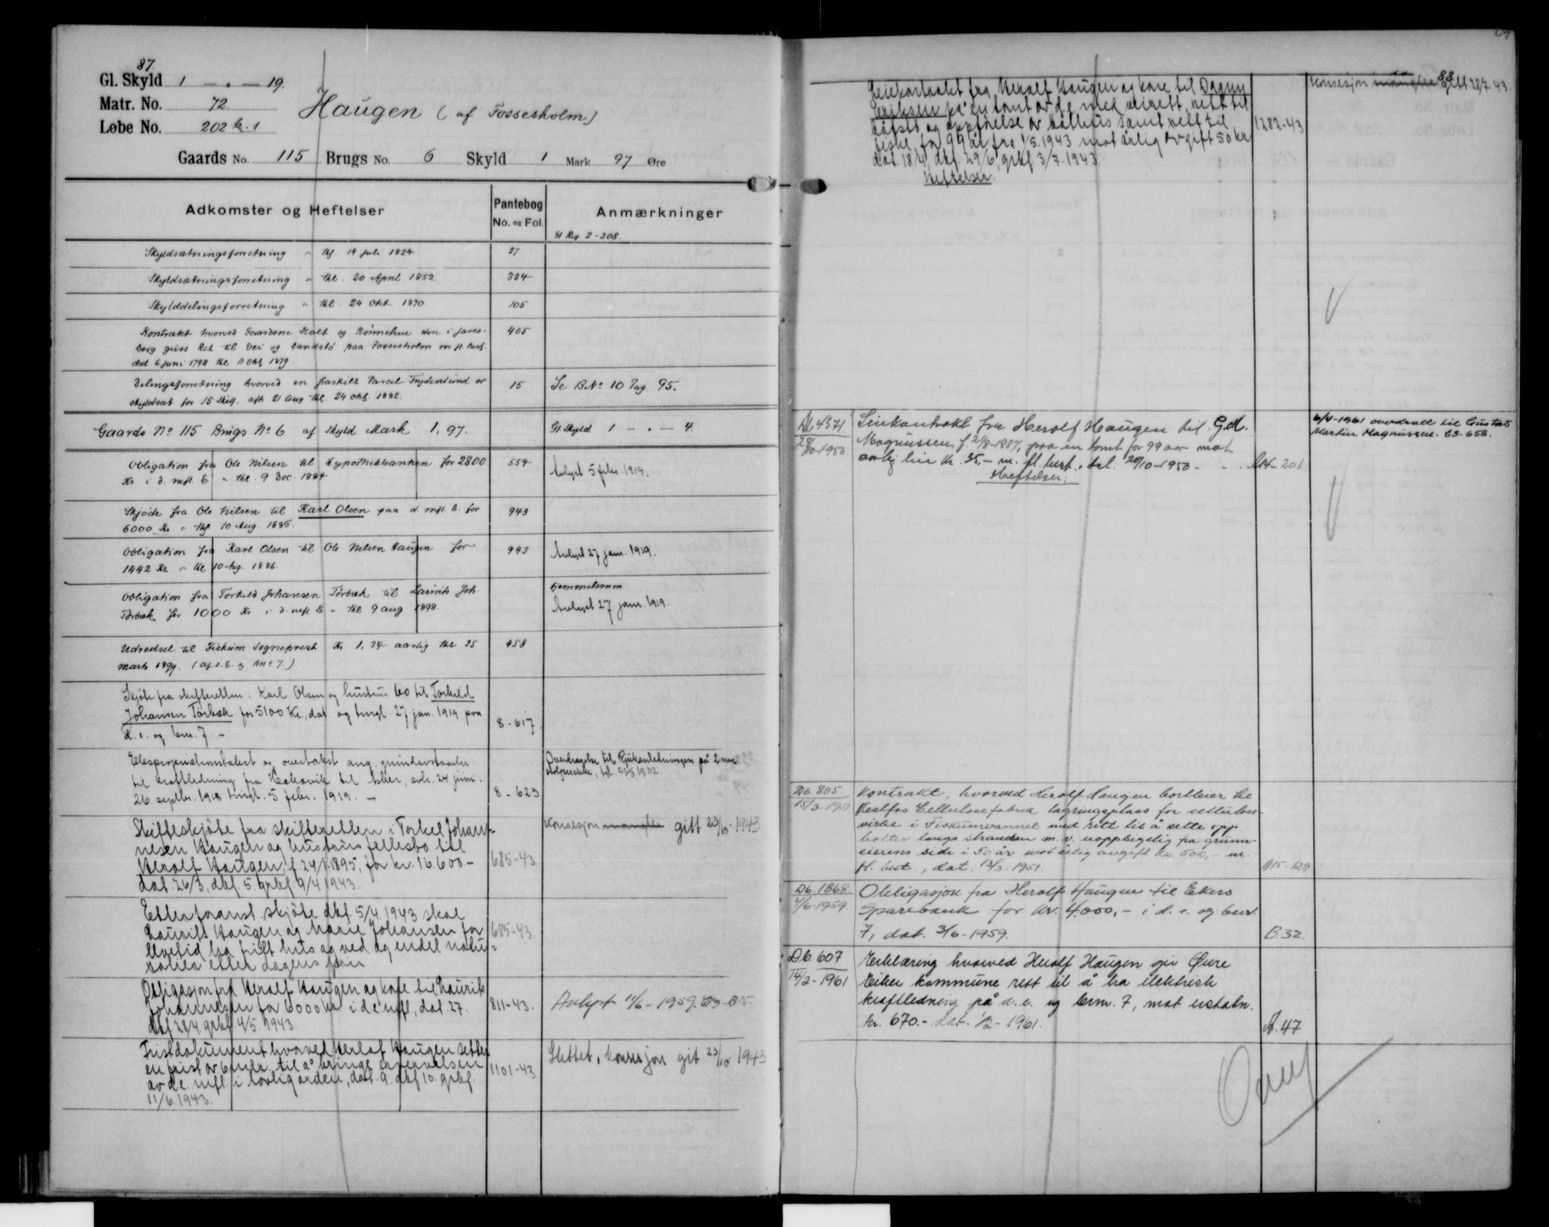 87
Gl. Skyld 1 – „ – 19
Matr. No. 72
Løbe No. 202 b. 1
Haugen (af Fossesholm)
Gaards No. 115 Brugs No. 6 Skyld 1 Mark 97 Øre
Adkomster og Hefteler
Pantebog No. og Fol.
Anmærkninger
Gl Reg. 2-208
Skyldsætningsforretning – thl. 19 juli 1824 27
Skyldsætningsforretning – thl. 20 April 1852 324
Skylddelingsforretning – thl. 24 Okt. 1870 105
Kontrakt hvorved Gaardene Holt og 405
berg gives Ret til Vei og Landstø paa Fossesholm m. fl. best.
dat 6 juni 1798 thl. 11 Okt 1879
Delingsforretning hvorved en fraskilt Parcel Frydenlund er 15 Se B.No 10 Pag. 95.
skyldsat for 15 Skill. afh 21 Aug thl. 24 okt. 1882.
Gaards No 115 Brugs No 6 af Skyld Mark 1,97. Gl Skyld 1 – „ – 4.
Obligation fra Ole Nilsen til Hypothekbanken for 2800 554 Avlyst 5 febr. 1919.
Kr i d. mfl E – thl. 9 Dec. 1884
Skjøde fra Ole Nilsen til Karl Olsen paa d. mfl E. for 943
6000 Kr – thl 10 Aug. 1886.
Obligation fra Karl Olsen til Ole Nilsen Haugen for 943 Avlyst 27 jan. 1919.
1442 Kr. – thl 10 Aug. 1886.
Obligation fra Torkild Johansen Torbæk til Laurits Joh Hjemmelsmm
Torbæk for 1000 Kr i d. mfl E – thl 9 aug 1898. Avlyst 27 jan. 1919.
Udredsel til Fiskum Sogneprest Kr 1,34 aarlig thl 25 458
marts 1899. (Af d. E. og No 7.)
Skjøte fra skifteretten i Karl Olsen og hustrus bo til Torkild
Johansen Torbæk for 5100 Kr., dat. og tingl. 27 jan. 1919 paa 8-617
d. e. og brn. 7. –
Ekspropriationstakst og overtakst ang. grundavstaaelse Overdragelse til Rjukanledningen på 2 nye
til kraftledning fra til Asker, avh. 24 juni.
26 septbr. 1918 tingl. 5 febr. 1919. – 8-623
Skifteskjøte fra skifteretten i Torkel Johan- Konsesjon mangler gitt 23/10-1943
nesen Haugen og hustrus fellesbo til
Herolf Haugen, f. 24/1 1895, for kr. 16600 – 685-43
dat. 26/3, dbf. 5. grbf 9/4 1943.
Etter foranst. skjøte dbf. 5/4 1943 skal
Laurits Haugen og Marie Johansen for 685-43
livstid ha fritt hus og ved og endel natu-
ralia etter dagens pris
Obligasjon fra Herolf Haugen og kone til Laurits
Johannesen for 6000 kr. i d. e. mfl, dat. 27. 811-43. Avlyst 4/6-1959.
dbf 29/4 grbf 4/5 1943.
Fristdokument hvorved Herlof Haugen setter Slettet, konsesjon git 23/10 1943
en frist av 6 mdr. til å bringe ervervelsen 1101-43
av d. e. mfl. i lovlig orden, dat. 9. dbf 10. grbf.
11/6 1943.
88
Leiekontrakt fra Herolf Haugen og kone til Dagny Konsesjon mangler gitt 23/7-43
Eriksen på en tomt av d. e. med veirett, rett til
båtsted og oppførelse av båthus samt rett til 1282-43
fiske for 99 år fra 1/5 1943 mot årlig avgift 50 kr
dat 18/4, dbf. 29/6, grbf 3/7. 1943
Heftelser.
Db 4371 Leiekontrakt fra Herolf Haugen til G.M. 4/4-1961 overdratt til Gustav
28/10-1950 Magnussen, f. 2/8-1887, paa en tomt for 99 aar mot Martin Magnussen. 63-658.
aarlig leie kr. 35,- m. fl. best., dat. 20/10-1950 - A14-201
Heftelser:
Db. 805 Kontrakt, hvorved Herolf Haugen bortleier til
Vestfos Cellulosefabrik lagringsplass for cellulose-
virke i Fiskumvannet med rett til å sette opp
bolter langs stranden m. v. uoppsigelig fra grunn-
eierens side i 50 år mot årlig avgift kr. 500,- m.
fl. best., dat. 13/3-1951. A15-129
Db. 1868 Obligasjon fra Herolf Haugen til Eikers
4/6-1959 Sparebank for kr. 4000,- i d. e. og brnr.
7, dat. 3/6-1959. B.32.
Db 607 Erklæring hvorved Herolf Haugen gir Øvre
14/2-1961 Eiker kommune rett til å ha elektrisk
kraftledning på d. e. og brnr. 7, mot erstatn.
kr. 670.- dat. 1/2-1961. A.47